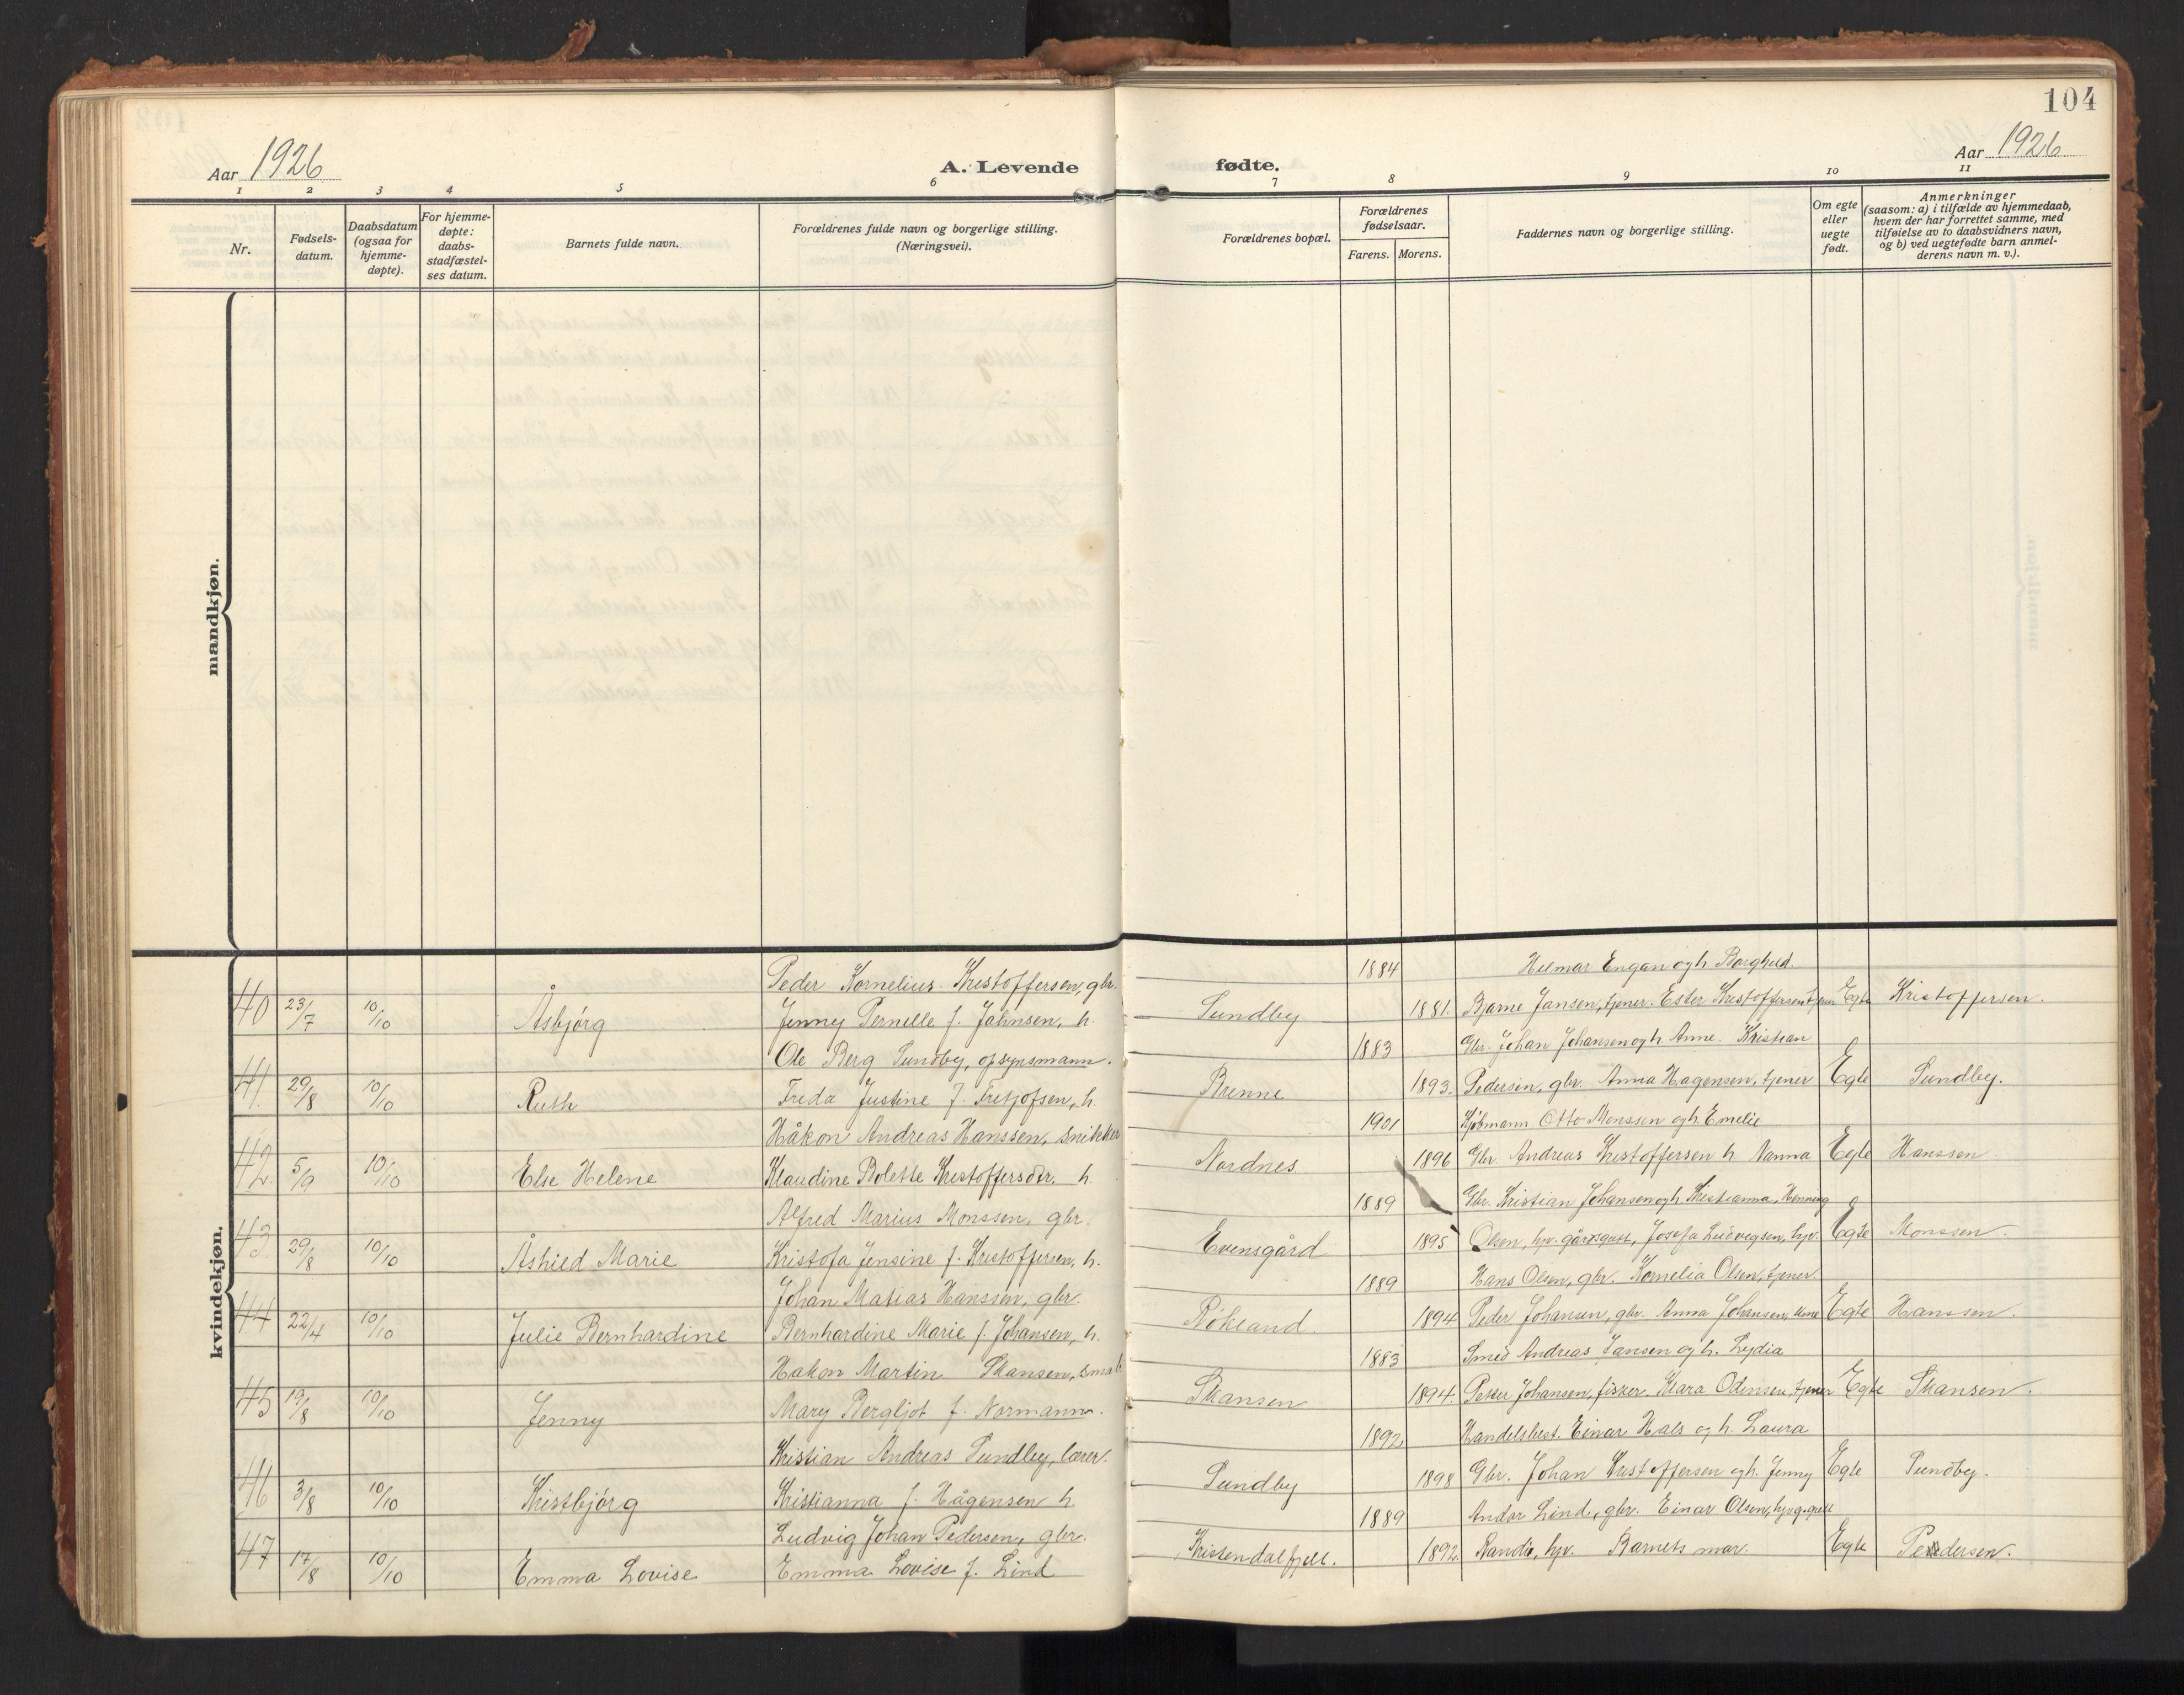 104
Aar 1926
A. Levende fødte.
Aar 1926
1 2 3 4 5 6 7 8 9 10 11
Nr.
Fødsels-
datum.
Daabsdatum
(ogsaa for
hjemme-
døpte).
For hjemme-
døpte:
daabs-
stadfæstel-
ses datum.
Barnets fulde navn.
Forældrenes fulde navn og borgerlige stilling.
(Næringsvei).
Forældrenes bopæl.
Forældrenes
fødselsaar.
Farens. Morens.
Faddernes navn og borgerlige stilling.
Om egte
eller
uegte
født.
Anmerkninger
(saasom: a) i tilfælde av hjemmedaab,
hvem der har forrettet samme, med
tilføielse av to daabsvidners navn,
og b) ved uegtefødte barn anmel-
derens navn m. v.).
mandkjøn.
kvindekjøn.
Peder Kornelius Kristoffersen, gbr. 1884 Hilmar Engan og h. Borghild.
40 23/7 10/10 Åsbjørg Jenny Pernille f. Jahnsen, h. Sundby 1881. Bjarne Jansen, tjener. Ester Kristoffersen tjener Egte Kristoffersen.
Ole Berg Sundby, opsynsmann. 1883 Gbr. Johan Johansen og h. Anne. Kristian
41. 29/8 10/10 Ruth Freda Justine f. Fritjofsen, h. Brenne 1893. Pedersen, gbr. Anna Hagensen, tjener Egte Sundby.
Håkon Andreas Hanssen, snikker 1901 Kjøbmann Otto Monssen og h. Emelie
42. 5/9 10/10 Else Helene Klaudine Bolette Kristoffersdtr. h. Nordnes 1896 Gbr. Andreas Kristoffersen h. Nanna Egte Hanssen
Alfred Marius Monssen, gbr. 1889 Gbr. Kristian Johansen og h. Kristianna, Henning
43. 29/8 10/10 Åshild Marie Kristofa Jensine f. Kristoffersen, h. Evensgård 1895 Olsen, hjv. gårdsgutt, Josefa Ludvigsen, hjv. Egte Monssen.
Johan Matias Hanssen, gbr. 1889 Hans Olsen, gbr. Kornelia Olsen, tjener.
44 22/4 10/10 Julie Bernhardine Bernhardine Marie f. Johansen, h. Røkland. 1894 Peder Johansen, gbr. Anna Johansen, Egte Hanssen.
Hakon Martin Skansen, 1883 Smed Andreas Jansen og h. Lydia
45 19/8 10/10 Jenny Mary Bergljot f. Normann. Skansen 1894. Petter Johansen, fisker. Klara Odinsen, tjener Egte Skansen.
Kristian Andreas Sundby, lærer. 1892 Handelsbest. Einar Hals og h. Laura
46 3/8 10/10 Kristbjørg Kristianna f. Hågensen h. Sundby 1898 Gbr. Johan Kristoffersen og h. Jenny Egte Sundby.
Ludvig Johan Pedersen, gbr. 1889 Andor Lind, gbr. Einar Olsen, hjv. g.gutt
47 17/8 10/10 Emma Lovise Emma Lovise f. Lind Kristendalfjell. 1892. Randi, hjv. Barnets mor. Egte Pedersen.